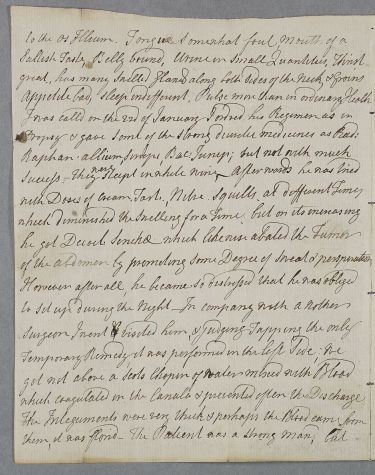 to the os Illium. Tongue somewhat foul mouth of a
Saltish Taste, Belly bound, Urine in Small Quantities, Thirst
great, has many Swelled Glands along both sides of the Neck & Groins
Appetite bad, Sleep indifferent, Pulse more than in ordinary health
I was called on the 22d of January I ordred his Regimen as in
Dropsy & gave some of the strong diuretic medicines as Rad:
Raphan: allium Syrup: Bac: Junip; but not with much
Success – they
were Afterwards he was tried
with Doses of Cream Tart. Nitre. Squills, at different Times
which diminished the Swelling for a Time, but on its increasing
he got Decoct Senekæ which likewise abated the Tumor
of the abdomen by promoting some Degree of Sweat & perspiration
However after all he became so distressed that he was obliged
to set up during the Night – In company with another
Surgeon I went & visited him & judging Tapping the only
Temporary Remedy it was performed in the left Side: We
got not above a Scots Chopin of water mixed with Blood
which coagulated in the Canula & prevented often the Discharge
The Integuments were very thick & perhaps the Blood came from
them, it was florid – The Patient was a strong man,